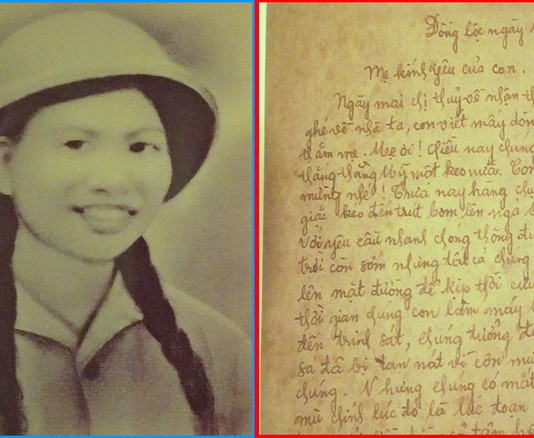 Đồng lộc ngày
Mẹ kính yêu của con.
Ngày mai chị thuý về nhận th
ghé về nhà ta, con viết mấy dòn
thăm mẹ. Mẹ ơi! chiều nay chúng
thắng thằng Mỹ một keo nữa.
mừng nhé! Trưa nay hàng chụ
giặc kéo đến trút bom lên ngã b
Với yêu cầu nhanh chóng thông đư
trời còn sớm nhưng tất cả chúng
lên mặt đường để kịp thời cứu
thời gian chúng con làm mấy
đến trinh sát, chúng tưởng đư
sá đã bị tan nát vì cơn mư
chúng. Nhưng chúng có mất
mù chính lúc đó là lúc toan